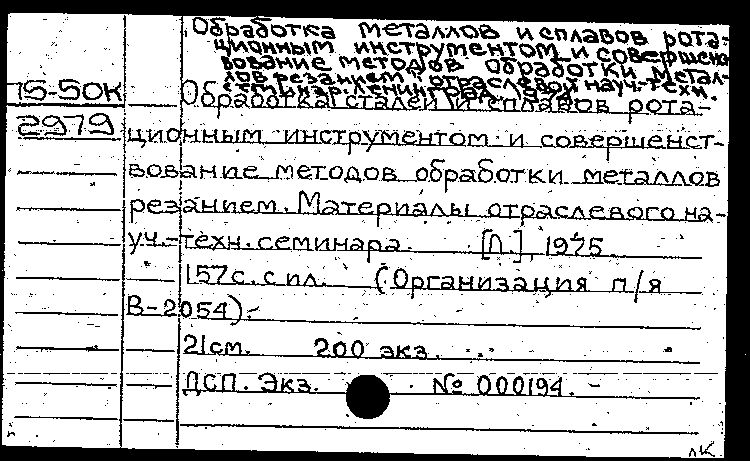 Обработка металлов и сплавов рота-
ционным инструментом и совершенс
вование методов обработки метал-
лов резанием, отраслевой науч.-техн.
семинар. Ленинград
75-50К
2979
Обработка сталей и сплавов рота-
ционным инструментом и совершенст-
вование методов обработки металлов
резанием. Материалы отраслевого на-
уч.-техн. семинара. [Л.], 1975
157с. с ил. (Организация п/я
В-2054).-
21см. 200 экз.
ДСП. Экз. № 000194. -
лк